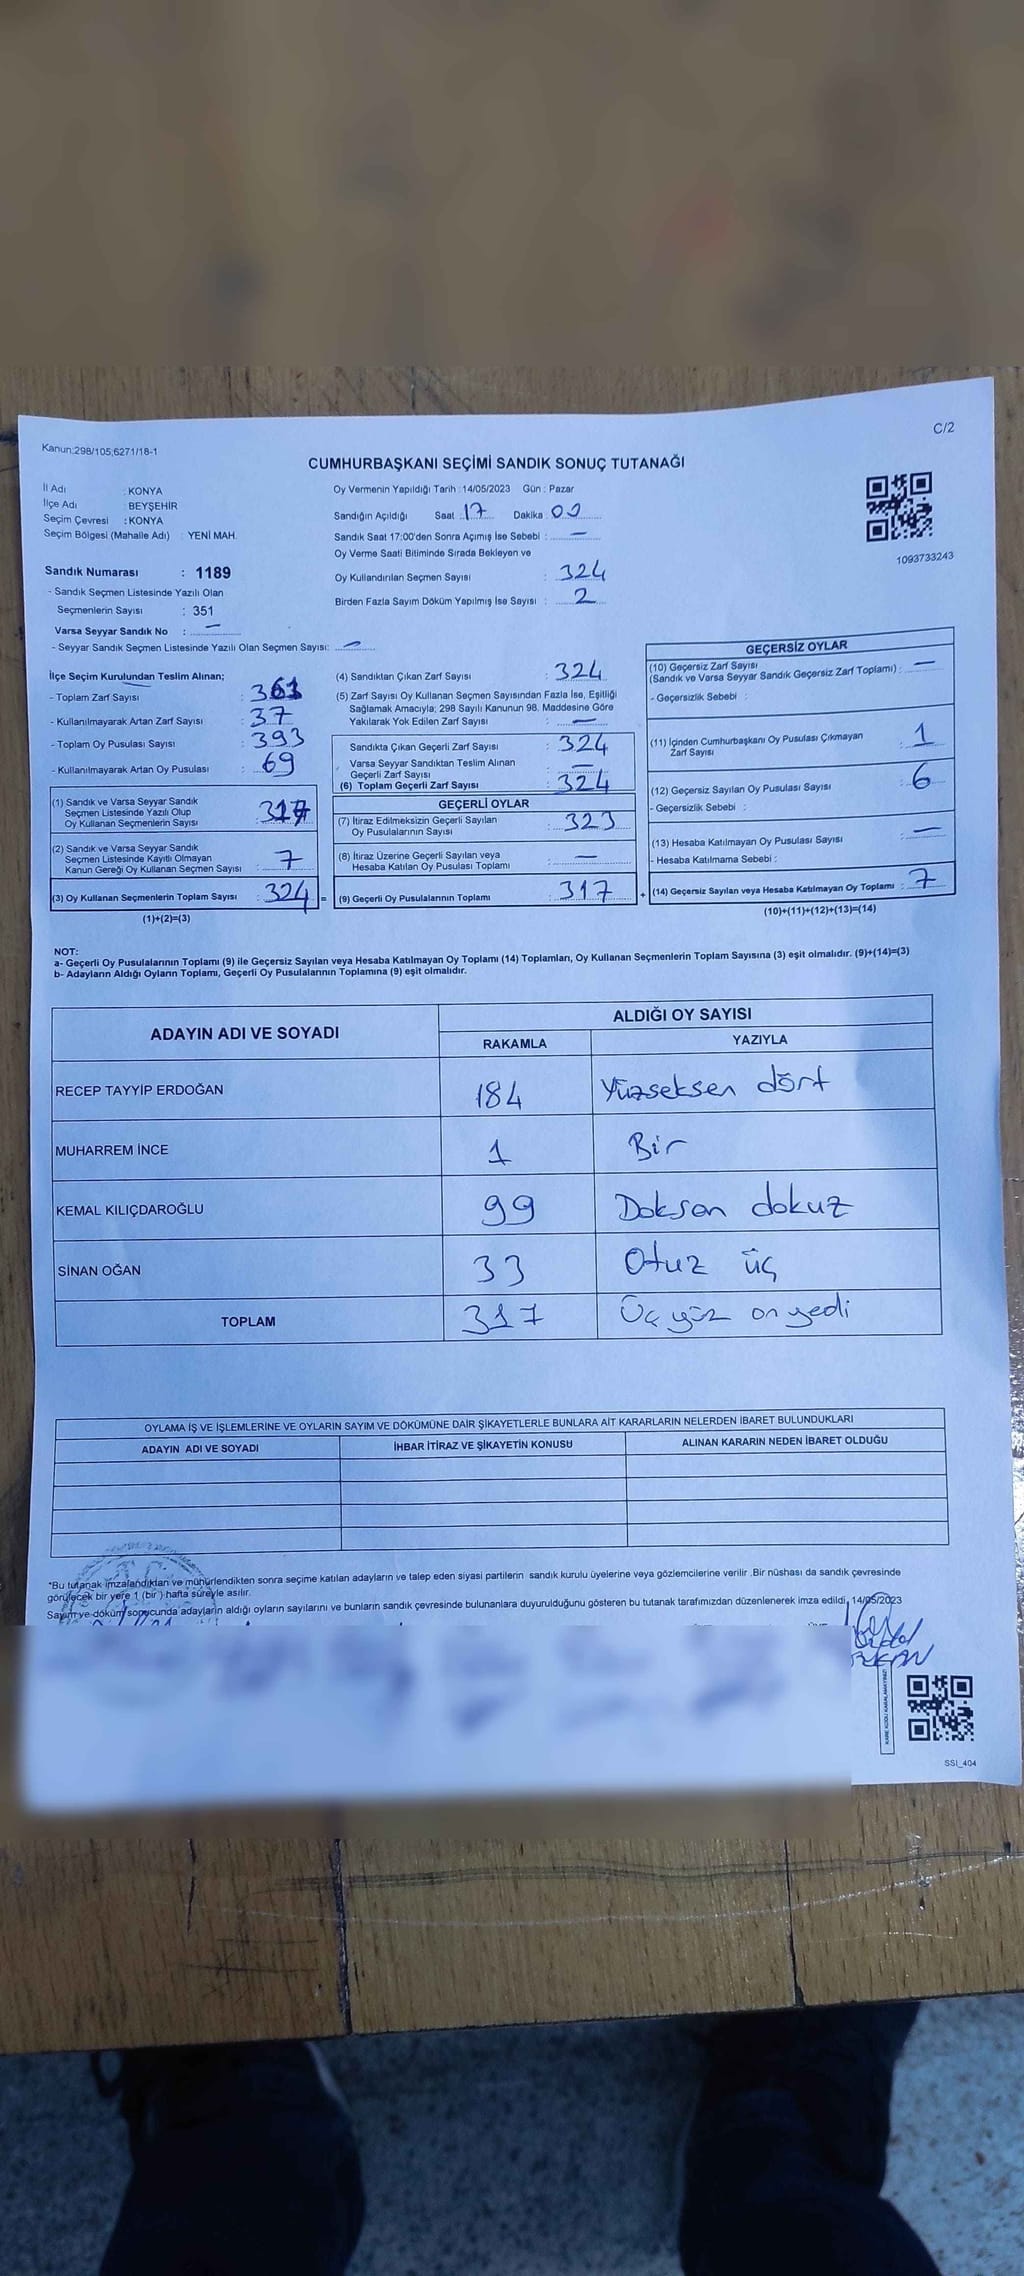 C/2
Kanun:298/105;6271/18-1
CUMHURBAŞKANI SEÇİMİ SANDIK SONUÇ TUTANAĞI
İl Adı : KONYA
İlçe Adı : BEYŞEHİR
Seçim Çevresi : KONYA
Seçim Bölgesi (Mahalle Adı) : YENİ MAH.
Oy Vermenin Yapıldığı Tarih : 14/05/2023 Gün : Pazar
Sandığın Açıldığı Saat : 17 Dakika : 00
Sandık Saat 17:00'den Sonra Açımış İse Sebebi : —
Oy Verme Saati Bitiminde Sırada Bekleyen ve
Oy Kullandırılan Seçmen Sayısı : 324
Birden Fazla Sayım Döküm Yapılmış İse Sayısı : 2
1093733243
Sandık Numarası : 1189
- Sandık Seçmen Listesinde Yazılı Olan
Seçmenlerin Sayısı : 351
Varsa Seyyar Sandık No : —
- Seyyar Sandık Seçmen Listesinde Yazılı Olan Seçmen Sayısı: —
İlçe Seçim Kurulundan Teslim Alınan;
- Toplam Zarf Sayısı : 361
- Kullanılmayarak Artan Zarf Sayısı : 37
- Toplam Oy Pusulası Sayısı : 393
- Kullanılmayarak Artan Oy Pusulası : 69
(1) Sandık ve Varsa Seyyar Sandık
Seçmen Listesinde Yazılı Olup
Oy Kullanan Seçmenlerin Sayısı : 317
(2) Sandık ve Varsa Seyyar Sandık
Seçmen Listesinde Kayıtlı Olmayan
Kanun Gereği Oy Kullanan Seçmen Sayısı : 7
(3) Oy Kullanan Seçmenlerin Toplam Sayısı : 324 =
(1)+(2)=(3)
(4) Sandıktan Çıkan Zarf Sayısı : 324
(5) Zarf Sayısı Oy Kullanan Seçmen Sayısından Fazla İse, Eşitliği
Sağlamak Amacıyla; 298 Sayılı Kanunun 98. Maddesine Göre
Yakılarak Yok Edilen Zarf Sayısı : —
Sandıkta Çıkan Geçerli Zarf Sayısı : 324
Varsa Seyyar Sandıktan Teslim Alınan
Geçerli Zarf Sayısı : —
(6) Toplam Geçerli Zarf Sayısı : 324
GEÇERLİ OYLAR
(7) İtiraz Edilmeksizin Geçerli Sayılan
Oy Pusulalarının Sayısı : 323
(8) İtiraz Üzerine Geçerli Sayılan veya
Hesaba Katılan Oy Pusulası Toplamı : —
(9) Geçerli Oy Pusulalarının Toplamı : 317 +
GEÇERSİZ OYLAR
(10) Geçersiz Zarf Sayısı
(Sandık ve Varsa Seyyar Sandık Geçersiz Zarf Toplamı) : —
- Geçersizlik Sebebi :
(11) İçinden Cumhurbaşkanı Oy Pusulası Çıkmayan
Zarf Sayısı : 1
(12) Geçersiz Sayılan Oy Pusulası Sayısı : 6
- Geçersizlik Sebebi :
(13) Hesaba Katılmayan Oy Pusulası Sayısı : —
- Hesaba Katılmama Sebebi :
(14) Geçersiz Sayılan veya Hesaba Katılmayan Oy Toplamı : 7
(10)+(11)+(12)+(13)=(14)
NOT:
a- Geçerli Oy Pusulalarının Toplamı (9) ile Geçersiz Sayılan veya Hesaba Katılmayan Oy Toplamı (14) Toplamları, Oy Kullanan Seçmenlerin Toplam Sayısına (3) eşit olmalıdır. (9)+(14)=(3)
b- Adayların Aldığı Oyların Toplamı, Geçerli Oy Pusulalarının Toplamına (9) eşit olmalıdır.
ADAYIN ADI VE SOYADI
ALDIĞI OY SAYISI
RAKAMLA YAZIYLA
RECEP TAYYİP ERDOĞAN 184 Yüzseksen dört
MUHARREM İNCE 1 Bir
KEMAL KILIÇDAROĞLU 99 Doksan dokuz
SİNAN OĞAN 33 Otuz üç
TOPLAM 317 Üç yüz on yedi
OYLAMA İŞ VE İŞLEMLERİNE VE OYLARIN SAYIM VE DÖKÜMÜNE DAİR ŞİKAYETLERLE BUNLARA AİT KARARLARIN NELERDEN İBARET BULUNDUKLARI
ADAYIN ADI VE SOYADI İHBAR İTİRAZ VE ŞİKAYETİN KONUSU ALINAN KARARIN NEDEN İBARET OLDUĞU
*Bu tutanak imzalandıktan ve mühürlendikten sonra seçime katılan adayların ve talep eden siyasi partilerin sandık kurulu üyelerine veya gözlemcilerine verilir .Bir nüshası da sandık çevresinde
görülecek bir yere 1 (bir ) hafta süreyle asılır.
Sayım ve döküm sonucunda adayların aldığı oyların sayılarını ve bunların sandık çevresinde bulunanlara duyurulduğunu gösteren bu tutanak tarafımızdan düzenlenerek imza edildi. 14/05/2023
KARE KODU KARALAMAYINIZ!
SSI_404